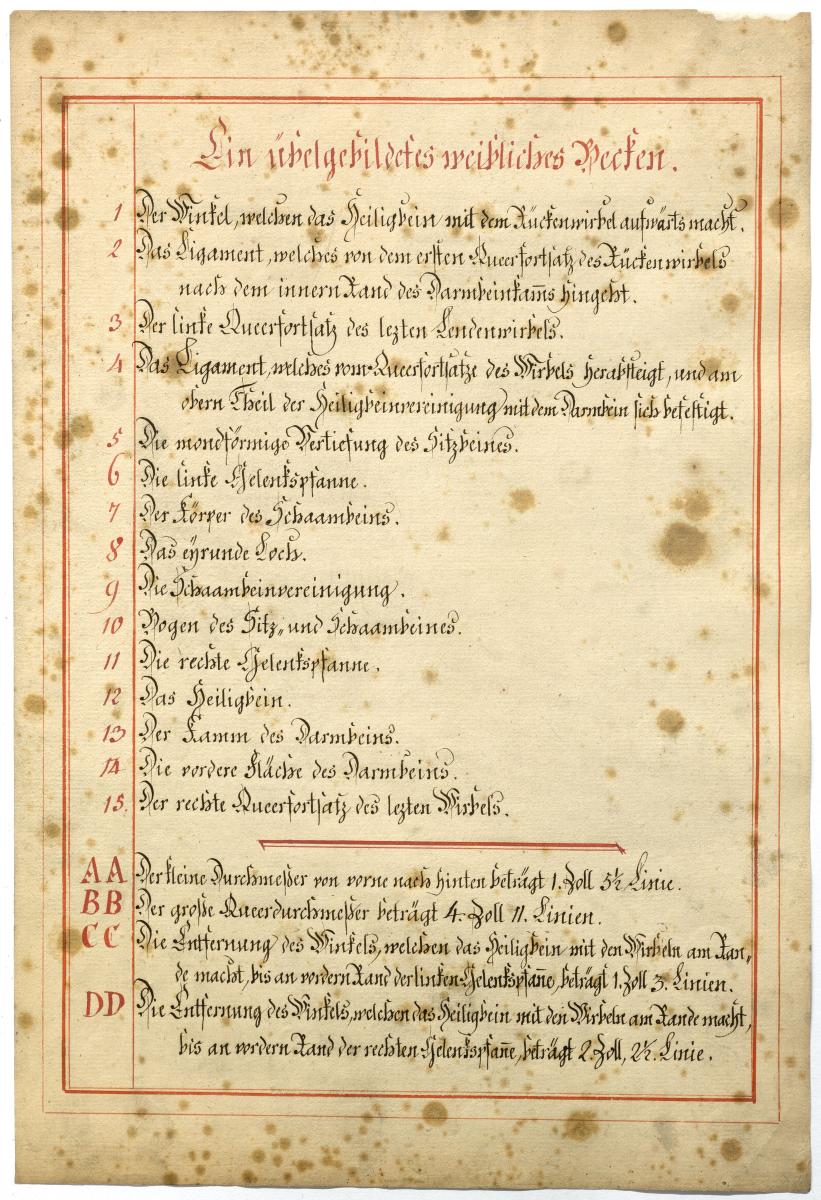 Ein übelgebildetes weibliches Becken.
1 Der Winkel, welchen das Heiligbein mit dem Rückenwirbel aufwärts macht.
2 Das Ligament, welches von dem ersten Queerfortsatz des Rückenwirbels
nach dem innern Rand des Darmbeinkam̅s hingeht.
3 Der linke Queerfortsatz des lezten Lendenwirbels.
4 Das Ligament, welches vom Queerfortsatze des Wirbels herabsteigt, und am
obern Theil der Heiligbeinvereinigung mit dem Darmbein sich befestigt.
5 Die mondförmige Vertiefung des Sitzbeines.
6 Die linke Gelenkspfanne.
7 Der Körper des Schaambeins.
8 Das eyrunde Loch.
9 Die Schaambeinvereinigung.
10 Bogen des Sitz„ und Schaambeines.
11 Die rechte Gelenkspfanne.
12 Das Heiligbein.
13 Der Kamm des Darmbeins.
14 Die vordere Fläche des Darmbeins.
15. Der rechte Queerfortsatz des lezten Wirbels.
AA Der kleine Durchmeßer von vorne nach hinten beträgt 1. Zoll 5½ Linie.
BB Der große Queerdurchmeßer beträgt 4. Zoll 11. Linien.
CC Die Entfernung des Winkels, welchen das Heiligbein mit den Wirbeln am Ran„
de macht, bis an vordern Rand der linken Gelenkspfan̅e, beträgt 1. Zoll 3. Linien.
DD Die Entfernung des Winkels, welchen das Heiligbein mit den Wirbeln am Rande macht,
bis an vordern Rand der rechten Gelenkspfan̅e, beträgt 2. Zoll, 2½. Linie.